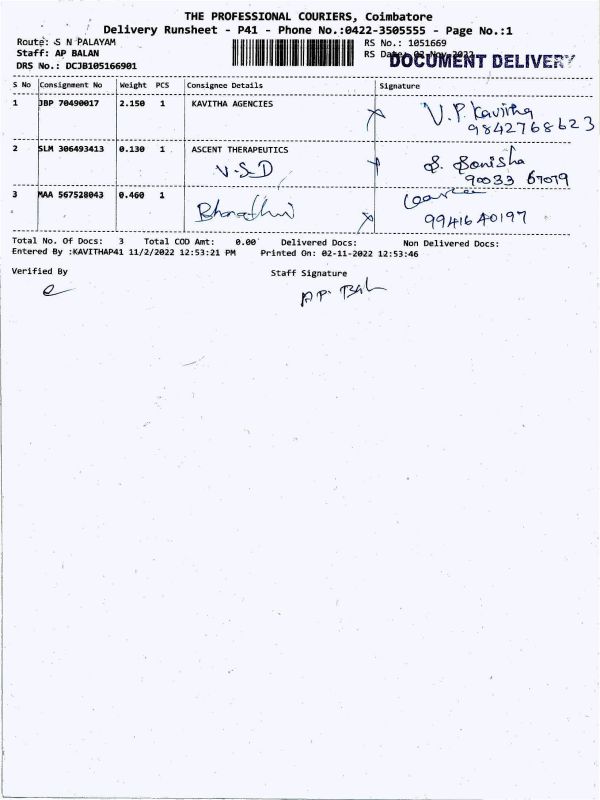 THE PROFESSIONAL COURIERS, Coimbatore
Delivery Runsheet - P41 - Phone No.:0422-3505555 - Page No.:1
Route: S N PALAYAM
Staff: AP BALAN
DRS No.: DCJB105166901
RS No.: 1051669
RS Date: 02-Nov-2022
DOCUMENT DELIVERY
S No Consignment No Weight PCS Consignee Details Signature
1 JBP 70490017 2.150 1 KAVITHA AGENCIES V.P. Kavitha
9842768623
2 SLM 306493413 0.130 1 ASCENT THERAPEUTICS S. Sonisha
V.S.D 90033 67079
3 MAA 567528043 0.460 1
99416 40197
Total No. Of Docs: 3 Total COD Amt: 0.00 Delivered Docs: Non Delivered Docs:
Entered By :KAVITHAP41 11/2/2022 12:53:21 PM Printed On: 02-11-2022 12:53:46
Verified By Staff Signature
AP. Bal